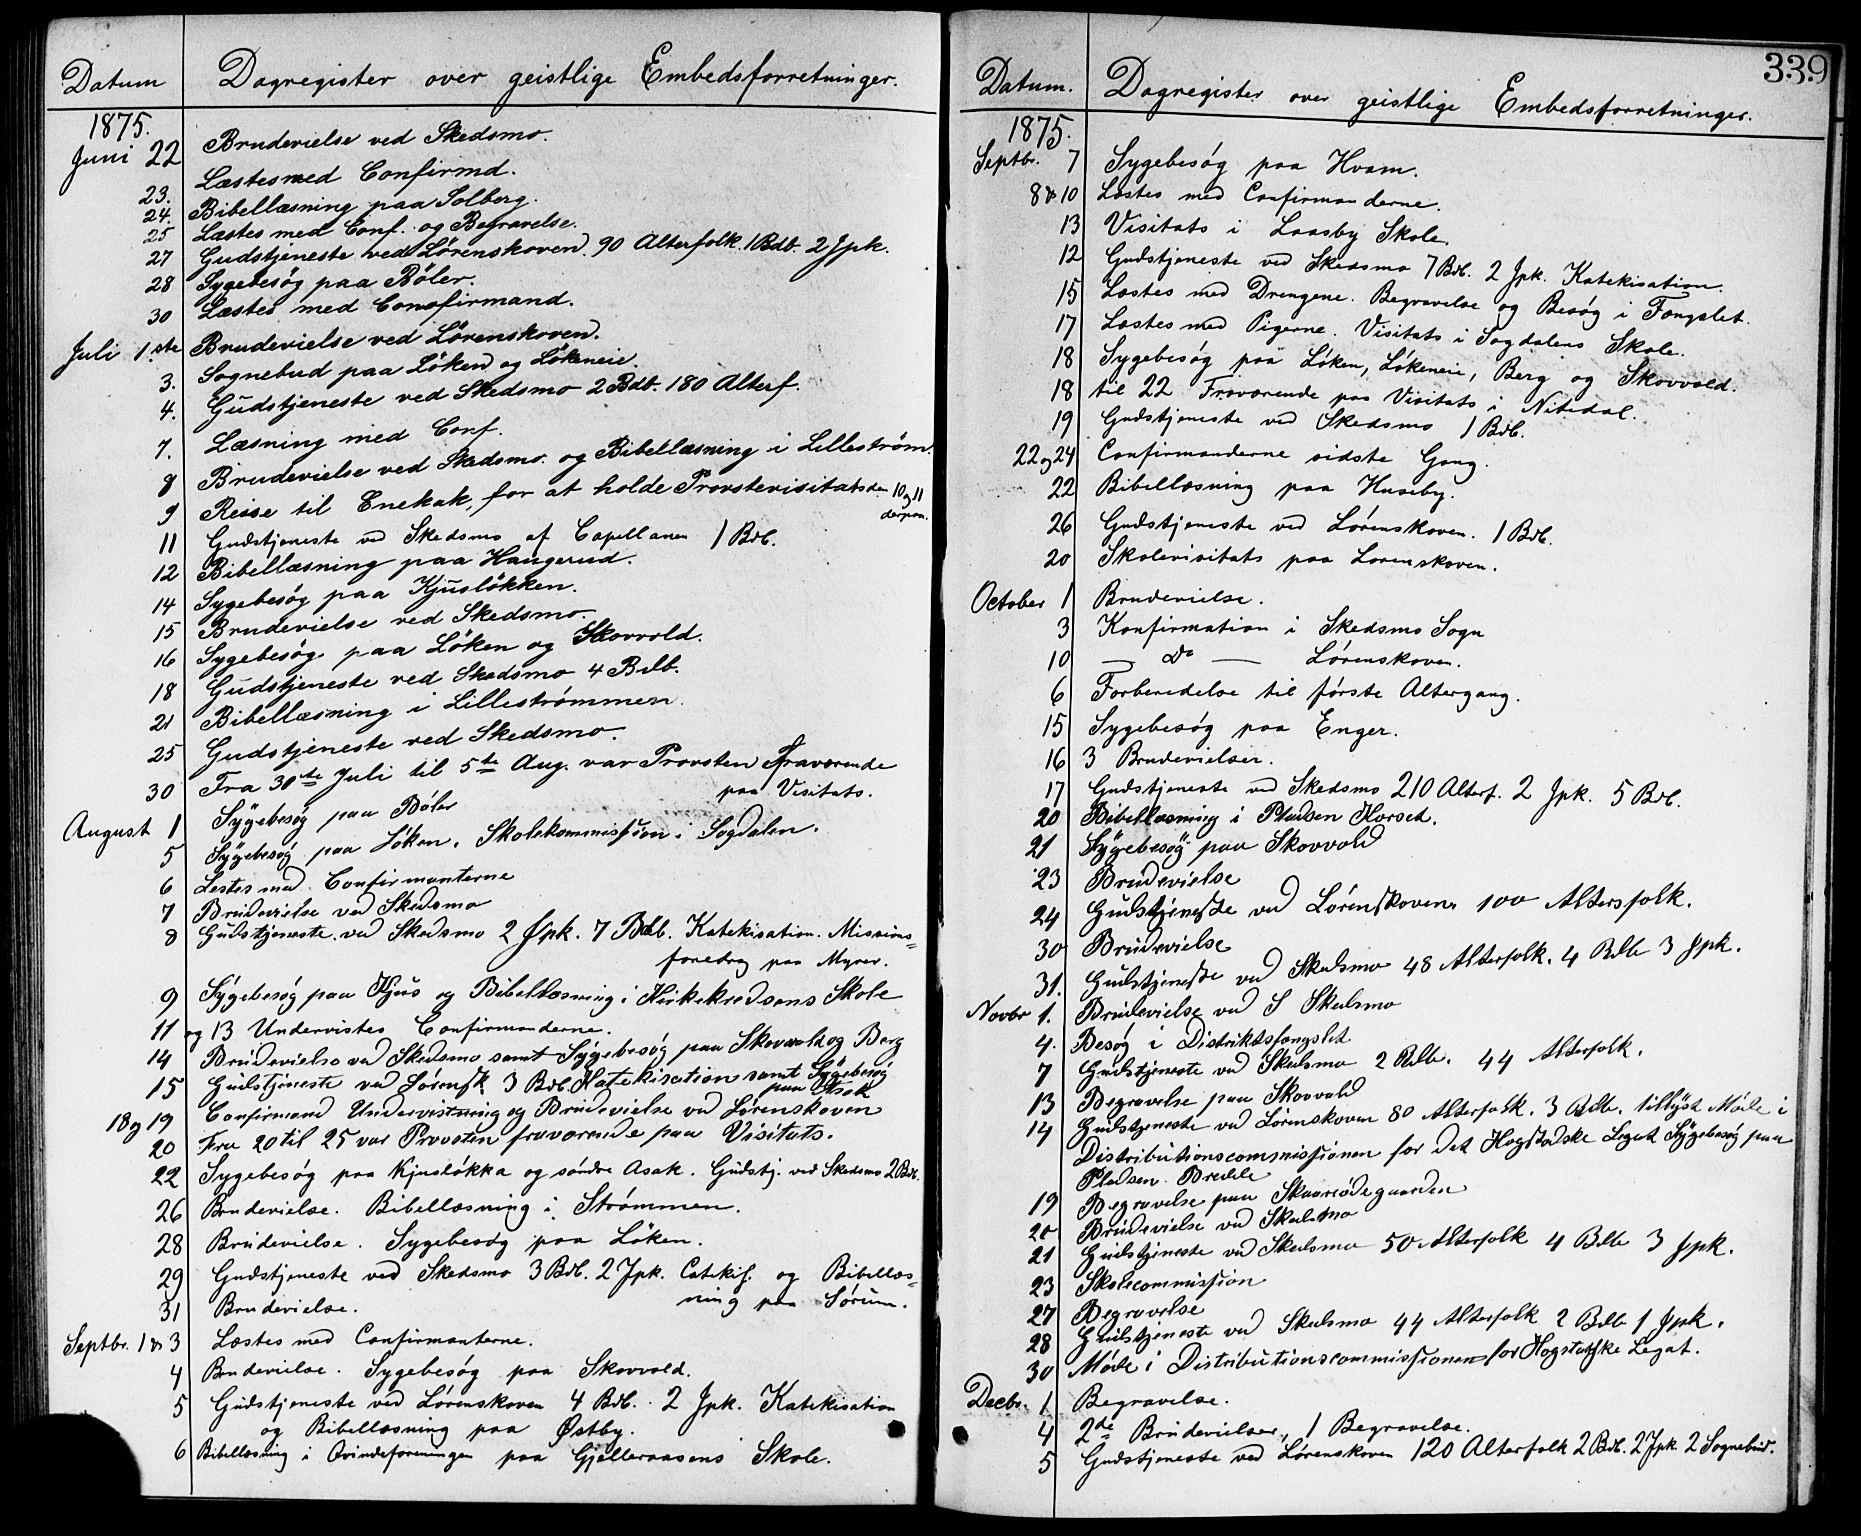 Datum Dagregister over geistlige Embedsforretninger.
1875.
Juni 22 Brudevielse ved Skedsmo.
23. Læstes med Confirmd.
24. Bibellæsning paa Solberg.
25 Læstes med Conf. og Begravelse.
27 Gudstjeneste ved Lørenskoven. 90 Alterfolk. 1 Bdb. 2 Jpk.
28 Sygebesøg paa Bøler.
30 Læstes med Conofirmand.
Juli 1.ste Brudevielse ved Lørenskoven.
3. Sognebud paa Løken og Løkeneie.
4. Gudstjeneste ved Skedsmo 2 Bdb. 180 Alterf.
7. Læsning med Conf.
8 Brudevielse ved Skedsmo. og Bibellæsning i Lillestrøm.
9 Reise til Enebak, for at holde Provstevisitats den 10 og 11
derpaa.
11 Gudstjeneste ved Skedsmo af Capellanen 1 Bdb.
12 Bibellæsning paa Haugerud.
14 Sygebesøg paa Kjusløkken.
15 Brudevielse ved Skedsmo.
16 Sygebesøg paa Løken og Skovvold.
18 Gudstjeneste ved Skedsmo 4 Bdb.
21 Bibellæsning i Lillestrømmen.
25 Gudstjeneste ved Skedsmo.
30 Fra 30te Juli til 5te Aug. var Provsten fraværende
paa Visitats.
August 1 Sygebesøg paa Bøler
5 Sygebesøg paa Løken. Skolekommission i Sogdalen.
6 Lestes med Confirmanterne
7 Brudevielse ved Skedsmo
8 Gudstjeneste ved Skedsmo 2 Jpk. 7 Bdb. Katekisation. Missions-
foredrag paa Myrer.
9 Sygebesøg paa Kjus og Bibellæsning i Kirkekredsens Skole
11 og 13 Undervistes Confirmanderne.
14 Brudevielse ved Skedsmo samt Sygebesøg paa Skovvold og Berg
15 Gudstjeneste ved Lørensk. 3 Bdb. Katekisation samt Sygebesøg
paa Asak
18 og 19 Confirmand Undervistning og Brudevielse ved Lørenskoven
20 Fra 20 til 25 var Provsten fraværende paa Visitats.
22 Sygebesøg paa Kjusløkka og søndre Asak. Gudstj. ved Skedsmo 2 Bdb.
26 Brudevielse. Bibellæsning i Strømmen.
28 Brudevielse. Sygebesøg paa Løken.
29 Gudstjeneste ved Skedsmo 3 Bdb. 2 Jpk. Catekis. og Bibellæs-
ning paa Sørum.
31 Brudevielse.
Septbr. 1 & 3 Læstes med Confirmanterne.
4 Brudevielse. Sygebesøg paa Skovvold.
5 Gudstjeneste ved Lørenskoven 4 Bdb. 2 Jpk. Katekisation
og Bibellæsning paa Østby.
6 Bibellæsning i Qvindeforeningen paa Gjelleraasens Skole.
339
Datum. Dagregister over geistlige Embedsforretninger.
1875.
Septbr. 7 Sygebesøg paa Hvam.
8 & 10 Læstes med Confirmanderne.
13 Visitats i Laasby Skole.
12 Gudstjeneste ved Skedsmo 7 Bdb. 2 Jpk. Katekisation.
15 Læstes med Drengene. Begravelse og Besøg i Fængslet.
17 Læstes med Pigerne. Visitats i Sogdalens Skole.
18 Sygebesøg paa Løken, Løkeneie, Berg og Skovvold.
18 til 22 Fraværende paa Visitats i Nitedal.
19 Gudstjeneste ved Skedsmo 1 Bdb.
22 og 24 Confirmanderne sidste Gang.
22 Bibellæsning paa Huseby.
26 Gudstjeneste ved Lørenskoven. 1 Bdb.
20 Skolevisitats paa Lørenskoven.
October 1 Brudevielse.
3 Konfirmation i Skedsmo Sogn
10 — Do — Lørenskoven.
6 Forberedelse til første Altergang.
15 Sygebesøg paa Enger.
16 3 Brudevielser.
17 Gudstjeneste ved Skedsmo 210 Alterf. 2 Jpk. 5 Bdb.
20 Bibellæsning i Pladsen Korsed.
21 Sygebesøg paa Skovvold
23 Brudevielse
24 Gudstjeneste ved Lørenskoven 100 Altersfolk.
30 Brudevielse
31. Gudstjeneste ved Skedsmo 48 Alterfolk. 4 Bdb 3 Jpk.
Novbr 1. Brudevielse ved S Skedsmo
4. Besøg i Distriktsfængslet
7 Gudstjeneste ved Skedsmo 2 Bdb. 44 Alterfolk.
13 Begravelse paa Skovvold
14 Gudstjeneste ved Lørenskoven 80 Alterfolk. 3 Bdb. tillyst Møde i
Distributionscommissionen for det Hogstadske Legat Sygebesøg paa
Pladsen Bredde
19 Begravelse paa Skaarsødegaarden
20 Brudevielse ved Skedsmo
21 Gudstjeneste ved Skedsmo 50 Alterfolk 4 Bdb 3 Jpk.
23 Skolecommission
27 Begravelse
28 Gudstjeneste ved Skedsmo 44 Alterfolk 2 Bdb 1 Jpk.
30 Møde i Distributionscommissionen for Hogstadske Legat.
Decbr. 1 Begravelse.
4 2de Brudevielser, 1 Begravelse.
5 Gudstjeneste ved Lørenskoven 120 Alterfolk 2 Bdb. 2 Jpk 2 Sognebud.